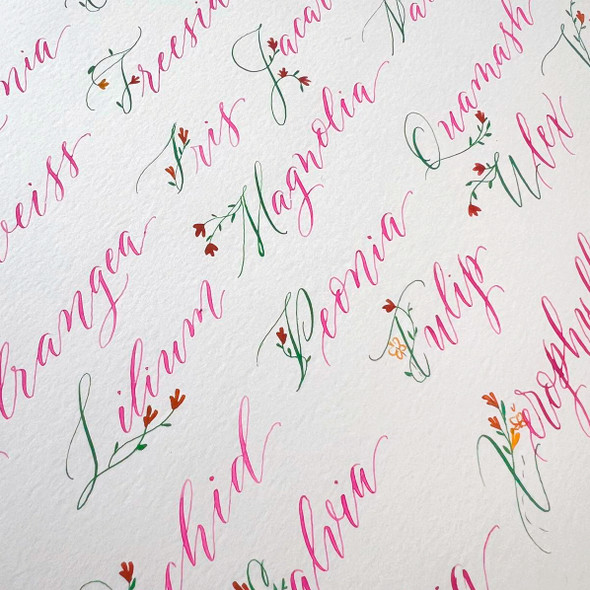 nia
Freesia
Jacar
Na
weiss
Iris
Magnolia
Quamash
Ulex
drangea
Lilium
Peonia
Tulip
Xerophyll
chid
Salvia